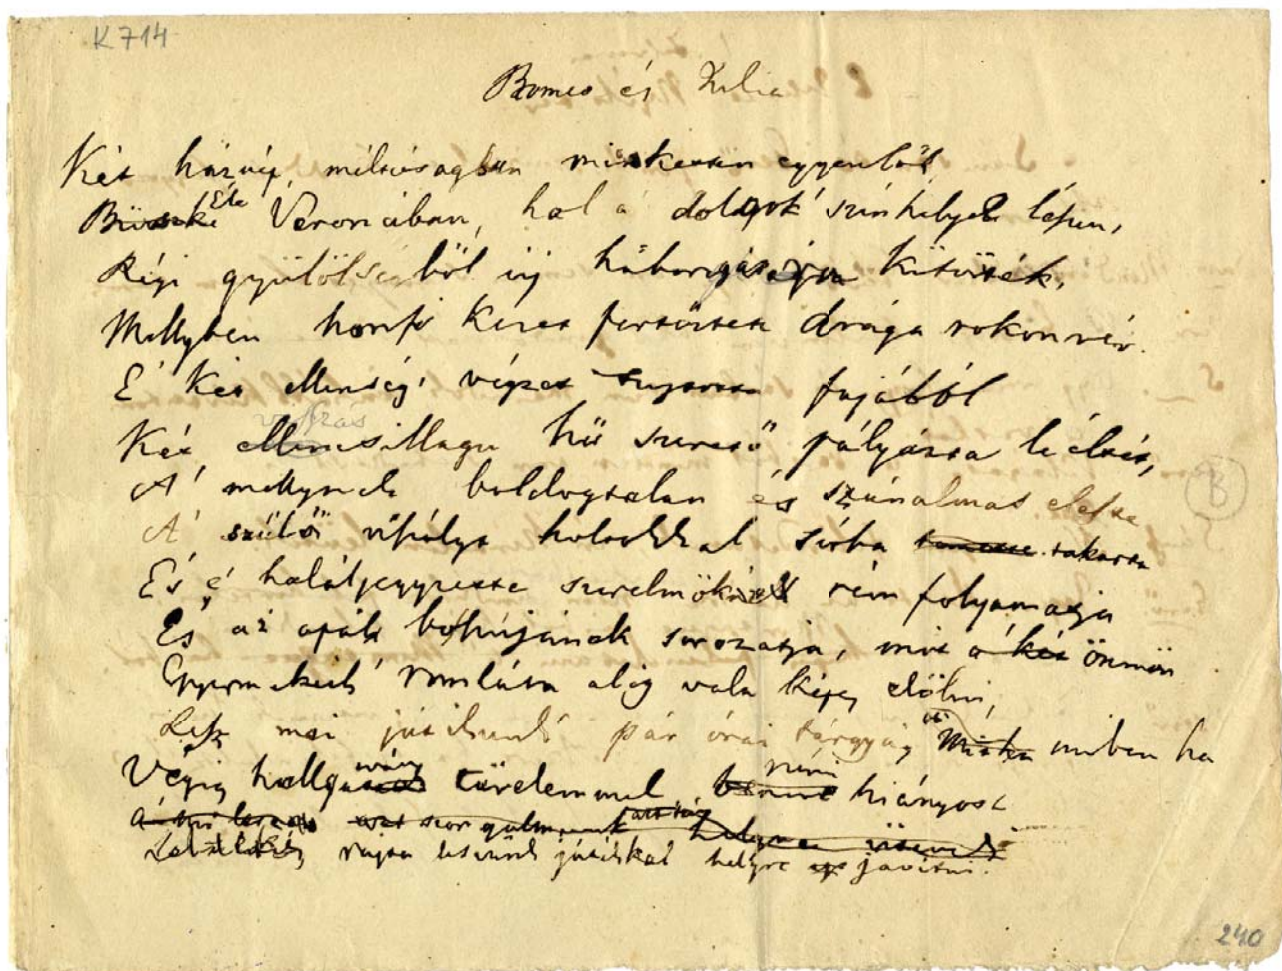 K 714
Romeo és Julia
Két háznép, méltóságban mindketten egyenlők
Büszke Éke Veronában, hol a' dolgok' színhelye lépen,
Régi gyűlölségből új háborgásra kitörték,
Mellyben honfi kezet fertőztet drága rokonvér.
E' két ellenség' végzet fajából
Két ellencsillagu vészes hű szerető pályázta le éltét,
A' mellynek boldogtalan és szánalmas eleste
A' szülői viszályt holtokkal sírba temette takarta
És e' haláljegyzette szerelmöknek rém folyamatja
És az apák boszújának sorozatja, mit a' két önnön
Gyermekeik' romlása alig vala képes elölni,
Lesz mai játékunk' pár órai tárgya, miben ha
Végig hallgat türelemmel, némi hiányost
rajta leszünk játékkal helyre javítni.
B
240